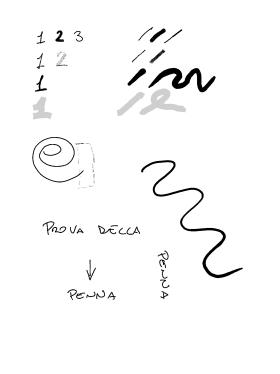 1 2 3
1 2
1
1
PROVA DELLA
PENNA
PENNA